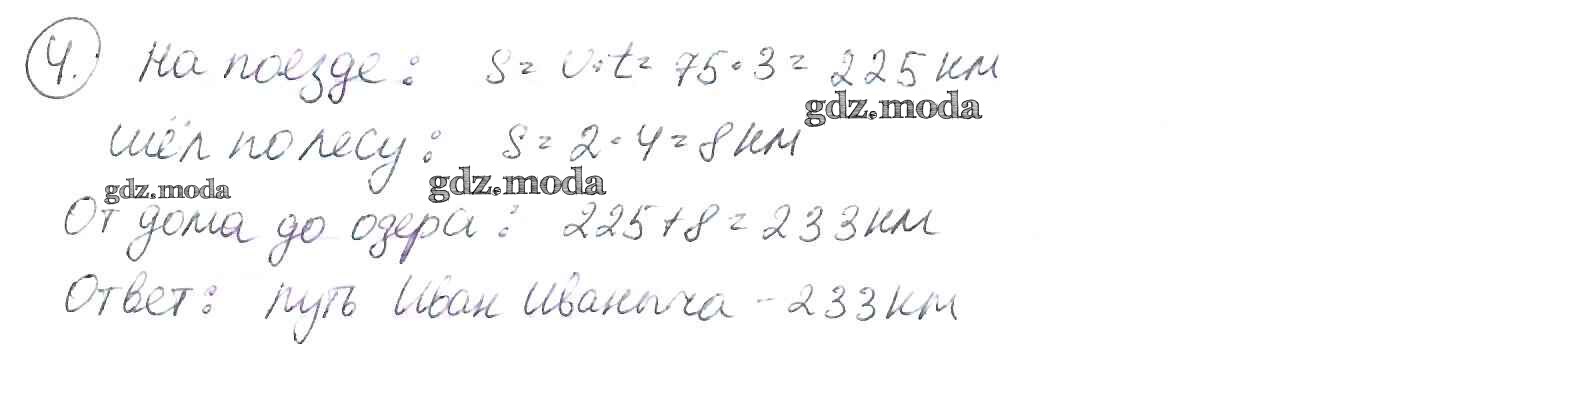 4. На поезде: S = v·t = 75·3 = 225 км
gdz.moda
Шёл по лесу: S = 2·4 = 8 км
gdz.moda gdz.moda
От дома до озера: 225+8 = 233 км
Ответ: путь Иван Иваныча - 233 км